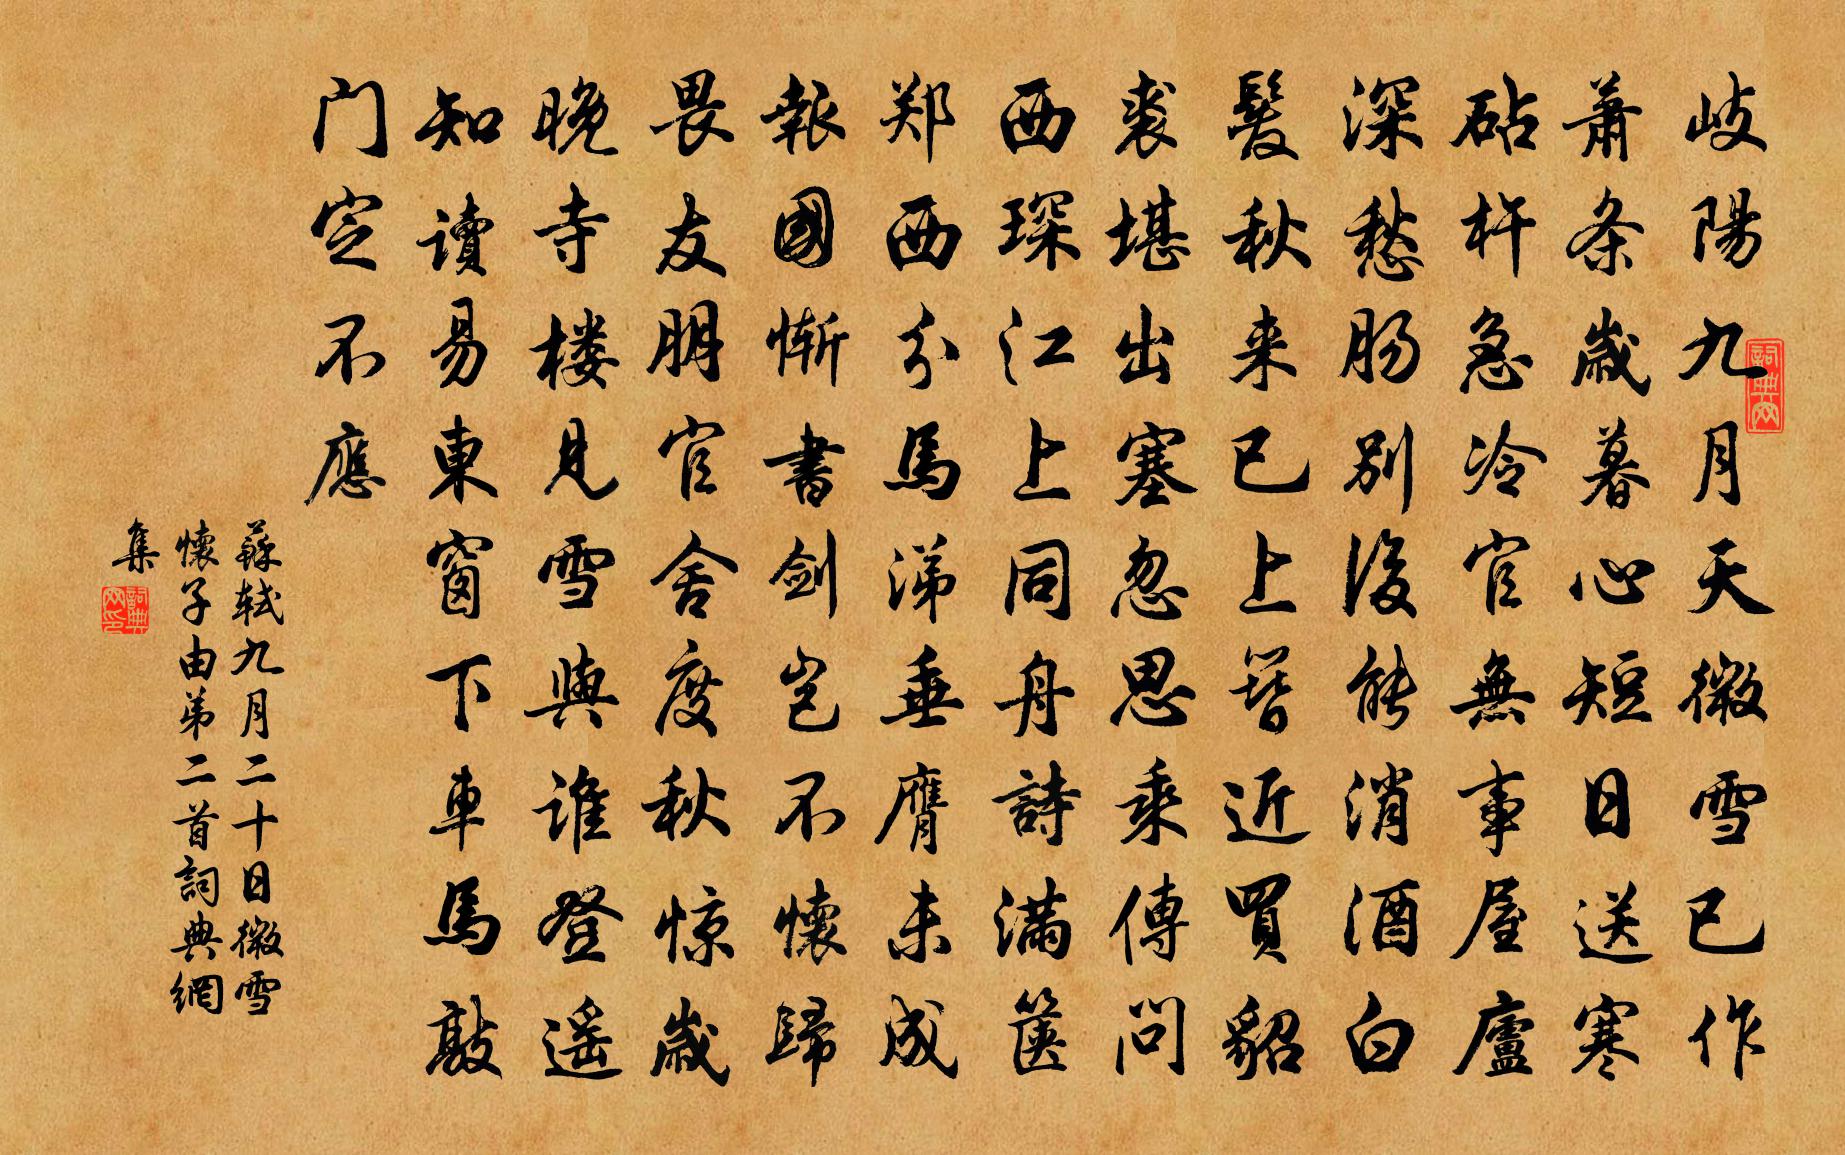 岐陽九月天微雪已作
蕭条歲暮心短日送寒
砧杵急冷官無事屋廬
深愁肠別後能消酒白
髮秋来已上簪近買貂
裘堪出塞忽思乘傳問
西琛江上同舟詩滿篋
郑西分馬涕垂膺未成
報國慚書剑豈不懷歸
畏友朋官舍度秋惊歲
晚寺楼見雪與誰登遥
知讀易東窗下車馬敲
门定不應
蘇軾九月二十日微雪
懷子由弟二首詞典網
集
詞典网
詞典网印